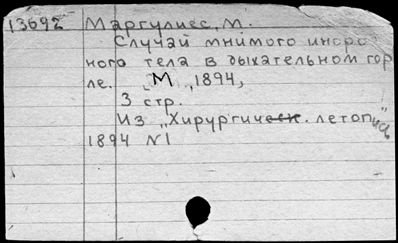 13692 Маргулиес, М.
Случай мнимого инор
ного тела в дыхательном гор
ле. М. 1894,
3 стр.
Из „Хирургическ. летопись"
1894 N1